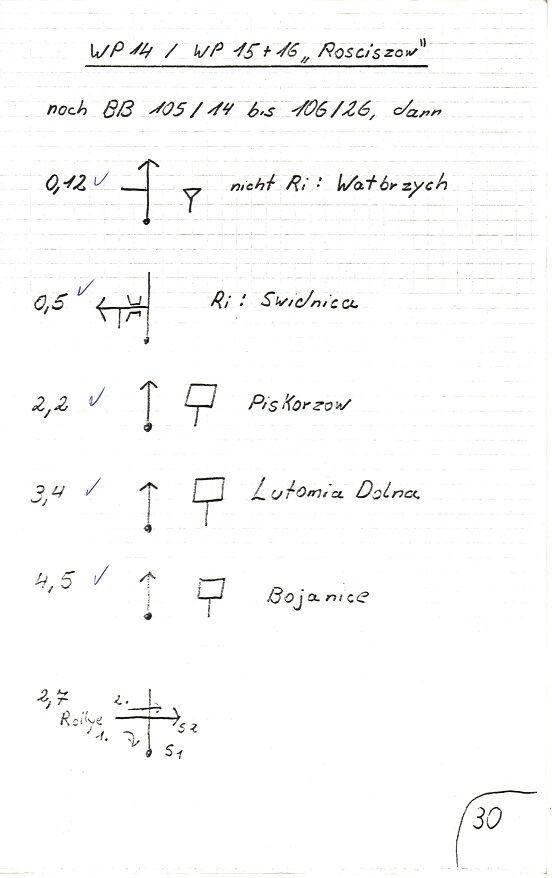 WP 14 / WP 15 + 16 „Rosciszow"
noch BB 105/14 bis 106/26, dann
0,12 ✓ nicht Ri: Watbrzych
0,5 ✓ Ri: Swidnica
2,2 ✓ Piskorzow
3,4 ✓ Lutomia Dolna
4,5 ✓ Bojanice
2,7 2.
Rallye S2
1. S1
30